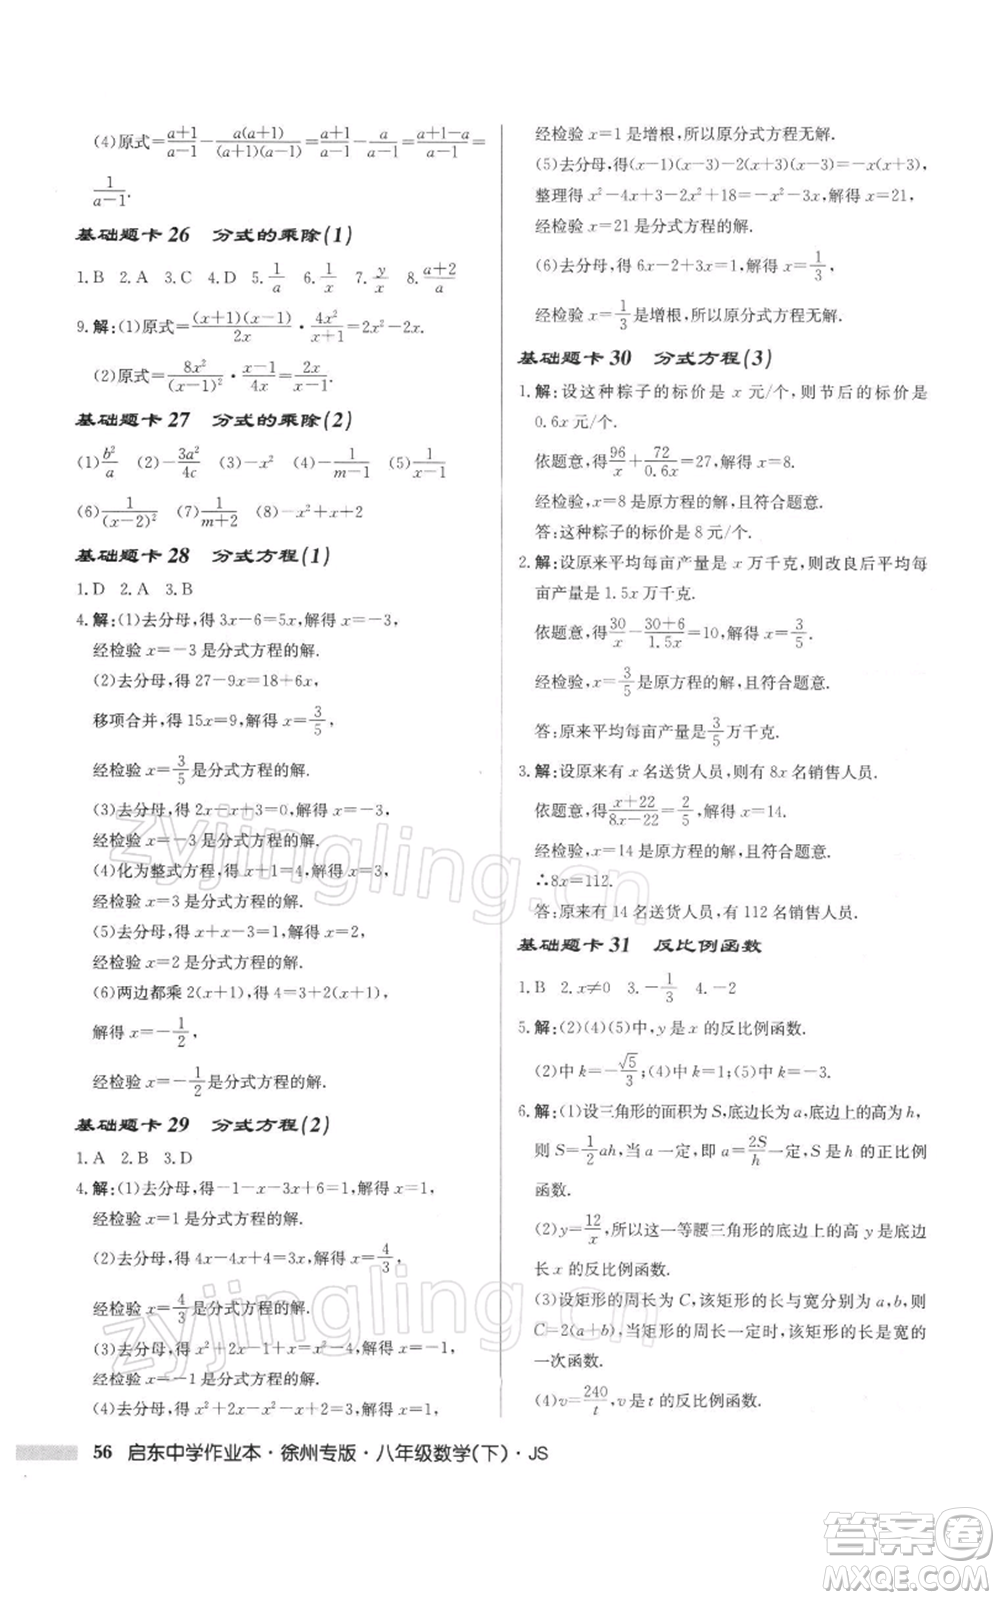 (4)原式=\frac{a+1}{a-1}-\frac{a(a+1)}{(a+1)(a-1)}=\frac{a+1}{a-1}-\frac{a}{a-1}=\frac{a+1-a}{a-1}=
\frac{1}{a-1}.
基础题卡 26 分式的乘除(1)
1.B 2.A 3.C 4.D 5.\frac{1}{a} 6.\frac{1}{x} 7.\frac{y}{x} 8.\frac{a+2}{a}
9.解:(1)原式=\frac{(x+1)(x-1)}{2x}·\frac{4x²}{x+1}=2x²-2x.
(2)原式=\frac{8x²}{(x-1)²}·\frac{x-1}{4x}=\frac{2x}{x-1}.
基础题卡 27 分式的乘除(2)
(1)\frac{b²}{a} (2)-\frac{3a²}{4c} (3)-x² (4)-\frac{1}{m-1} (5)\frac{1}{x-1}
(6)\frac{1}{(x-2)²} (7)\frac{1}{m+2} (8)-x²+x+2
基础题卡 28 分式方程(1)
1.D 2.A 3.B
4.解:(1)去分母,得 3x-6=5x,解得 x=-3,
经检验 x=-3 是分式方程的解.
(2)去分母,得 27-9x=18+6x,
移项合并,得 15x=9,解得 x=\frac{3}{5},
经检验 x=\frac{3}{5}是分式方程的解.
(3)去分母,得 2x-x+3=0,解得 x=-3,
经检验 x=-3 是分式方程的解.
(4)化为整式方程,得 x+1=4,解得 x=3,
经检验 x=3 是分式方程的解.
(5)去分母,得 3x=2x+2,解得 x=2,
经检验 x=2 是分式方程的解.
(6)两边都乘 2(x+1),得 4=3+x+1-3x-3,
解得 x=-\frac{1}{2},
经检验 x=-\frac{1}{2}是分式方程的解.
基础题卡 29 分式方程(2)
1.A 2.B 3.D
4.解:(1)去分母,得-1-x-3x+6=1,解得 x=1,
经检验 x=1 是分式方程的解.
(2)去分母,得 4x-4x+4=3x,解得 x=\frac{4}{3},
经检验 x=\frac{4}{3}是分式方程的解.
(3)去分母,得 x²+x²-x=2x²-1,解得 x=1,
经检验 x=1 是增根,所以原分式方程无解.
(5)去分母,得(x-1)(x-3)-2(x+3)(x-3)=-x²,
整理得 x²-4x+3-2x²+18=-x²,解得 x=21,
经检验 x=21 是分式方程的解.
(6)去分母,得 6x-2+3x=1,解得 x=\frac{1}{3},
经检验 x=\frac{1}{3}是增根,所以原分式方程无解.
基础题卡 30 分式方程(3)
1.解:设这种粽子的标价是 x 元/个,则节后的标价是
0.6x 元/个.
依题意,得\frac{96}{x}+\frac{72}{0.6x}=27,解得 x=8.
经检验,x=8 是原方程的解,且符合题意.
答:这种粽子的标价是 8 元/个.
2.解:设原来平均每亩产量是 x 万千克,则改良后平均
每亩产量是 1.5x 万千克.
依题意,得\frac{30}{x}-\frac{30+6}{1.5x}=10,解得 x=\frac{3}{5}.
经检验,x=\frac{3}{5}是原方程的解,且符合题意.
答:原来平均每亩产量是\frac{3}{5}万千克.
3.解:设原来有 x 名送货人员,则有 8x 名销售人员.
依题意,得\frac{x+22}{8x-22}=\frac{2}{5},解得 x=14.
经检验,x=14 是原方程的解,且符合题意.
∴8x=112.
答:原来有 14 名送货人员,有 112 名销售人员.
基础题卡 31 反比例函数
1.B 2.x≠0 3.-\frac{1}{3} 4.-2
5.解:(2)(4)(5)中,y 是 x 的反比例函数.
(2)中 k=-\frac{√5}{3};(4)中 k=1;(5)中 k=-3.
6.解:(1)设三角形的面积为 S,底边长为 a,底边上的高为 h,
则 S=\frac{1}{2}ah,当 a 一定,即 a=\frac{2S}{h}一定时,S 是 h 的正比例
函数.
(2)y=\frac{12}{x},所以这一等腰三角形的底边上的高 y 是底边
长 x 的反比例函数.
(3)设矩形的周长为 C,该矩形的长与宽分别为 a,b,则
C=2(a+b),当矩形的周长一定时,该矩形的长是宽的
一次函数.
(4)v=\frac{240}{t},v 是 t 的反比例函数.
56 启东中学作业本·徐州专版·八年级数学(下)·JS
zyjingling.cn
zyjingling.cn
答案卷
MXQE.COM